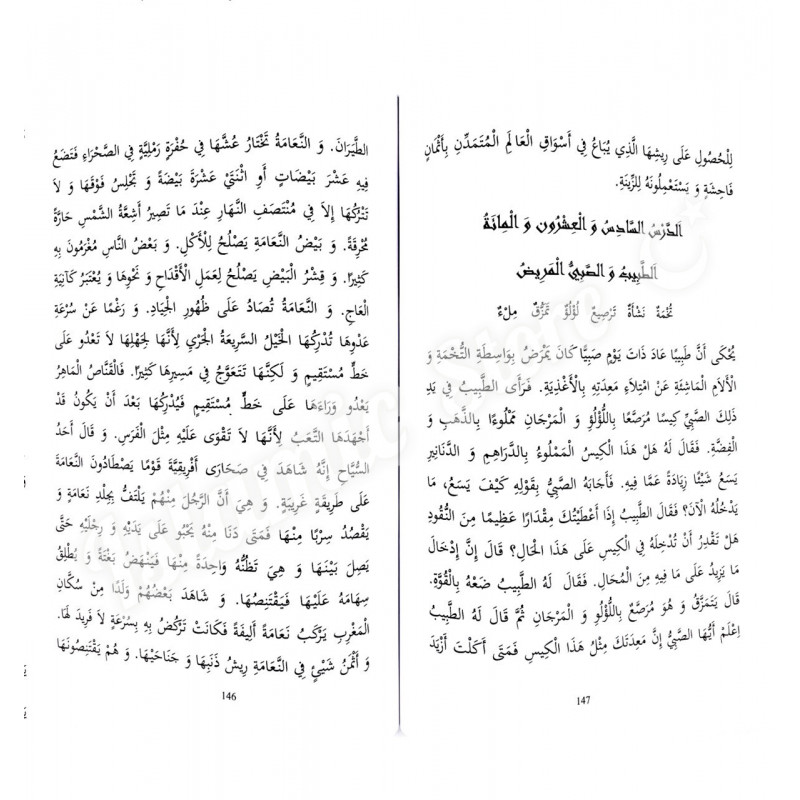 الطَّيَرَانَ. وَ النَّعَامَةُ تَخْتَارُ عُشَّهَا فِي حُفْرَةٍ رَمْلِيَّةٍ فِي الصَّحْرَاءِ فَتَضَعُ
فِيهِ عَشْرَ بَيْضَاتٍ أَوِ اثْنَتَيْ عَشْرَةَ بَيْضَةً وَ تَجْلِسُ فَوْقَهَا وَ لاَ
تَتْرُكُهَا إِلاَّ فِي مُنْتَصَفِ النَّهَارِ عِنْدَ مَا تَصِيرُ أَشِعَّةُ الشَّمْسِ حَارَّةً
مُحْرِقَةً. وَ بَيْضُ النَّعَامَةِ يَصْلُحُ لِلْأَكْلِ. وَ بَعْضُ النَّاسِ مُغْرَمُونَ بِهِ
كَثِيرًا. وَ قِشْرُ الْبَيْضِ يَصْلُحُ لِعَمَلِ الْأَقْدَاحِ وَ نَحْوِهَا وَ يُعْتَبَرُ كَآنِيَةِ
الْعَاجِ. وَ النَّعَامَةُ تُصَادُ عَلَى ظُهُورِ الْجِيَادِ. وَ رَغْمًا عَنْ سُرْعَةِ
عَدْوِهَا تُدْرِكُهَا الْخَيْلُ السَّرِيعَةُ الْجَرْيِ لِأَنَّهَا لِجَهْلِهَا لاَ تَعْدُو عَلَى
خَطٍّ مُسْتَقِيمٍ وَ لَكِنَّهَا تَتَعَوَّجُ فِي مَسِيرِهَا كَثِيرًا. فَالْقَنَّاصُ الْمَاهِرُ
يَعْدُو وَرَاءَهَا عَلَى خَطٍّ مُسْتَقِيمٍ فَيُدْرِكُهَا بَعْدَ أَنْ يَكُونَ قَدْ
أَجْهَدَهَا التَّعَبُ لِأَنَّهَا لاَ تَقْوَى عَلَيْهِ مِثْلَ الْفَرَسِ. وَ قَالَ أَحَدُ
السُّيَّاحِ إِنَّهُ شَاهَدَ فِي صَحَارَى أَفْرِيقِيَّةَ قَوْمًا يَصْطَادُونَ النَّعَامَةَ
عَلَى طَرِيقَةٍ غَرِيبَةٍ. وَ هِيَ أَنَّ الرَّجُلَ مِنْهُمْ يَلْتَفُّ بِجِلْدِ نَعَامَةٍ وَ
يَقْصُدُ سِرْبًا مِنْهَا فَمَتَى دَنَا مِنْهُ يَحْبُو عَلَى يَدَيْهِ وَ رِجْلَيْهِ حَتَّى
يَصِلَ بَيْنَهَا وَ هِيَ تَظُنُّهُ وَاحِدَةً مِنْهَا فَيَنْهَضُ بَغْتَةً وَ يُطْلِقُ
سِهَامَهُ عَلَيْهَا فَيَقْتَنِصُهَا. وَ شَاهَدَ بَعْضُهُمْ وَلَدًا مِنْ سُكَّانِ
الْمَغْرِبِ يَرْكَبُ نَعَامَةً أَلِيفَةً فَكَانَتْ تَرْكُضُ بِهِ بِسُرْعَةٍ لاَ مَزِيدَ لَهَا.
وَ أَثْمَنُ شَيْئٍ فِي النَّعَامَةِ رِيشُ ذَنَبِهَا وَ جَنَاحَيْهَا. وَ هُمْ يَقْتَنِصُونَهَا
146
لِلْحُصُولِ عَلَى رِيشِهَا الَّذِي يُبَاعُ فِي أَسْوَاقِ الْعَالَمِ الْمُتَمَدِّنِ بِأَثْمَانٍ
فَاحِشَةٍ وَ يَسْتَعْمِلُونَهُ لِلزِّينَةِ.
اَلدَّرْسُ السَّادِسُ وَ الْعِشْرُونَ وَ الْمِائَةُ
اَلطَّبِيبُ وَ الصَّبِيُّ الْمَرِيضُ
تُخْمَةٌ نَشْأَةٌ تَرْصِيعٌ لُؤْلُؤٌ تَمَزُّقٌ مِلْءٌ
يُحْكَى أَنَّ طَبِيبًا عَادَ ذَاتَ يَوْمٍ صَبِيًّا كَانَ يَمْرَضُ بِوَاسِطَةِ التُّخْمَةِ وَ
الْآلَامِ النَّاشِئَةِ عَنْ امْتِلَاءِ مَعِدَتِهِ بِالْأَغْذِيَةِ. فَرَأَى الطَّبِيبُ فِي يَدِ
ذَلِكَ الصَّبِيِّ كِيسًا مُرَصَّعًا بِاللُّؤْلُؤِ وَ الْمَرْجَانِ مَمْلُوءًا بِالذَّهَبِ وَ
الْفِضَّةِ. فَقَالَ لَهُ هَلْ هَذَا الْكِيسُ الْمَمْلُوءُ بِالدَّرَاهِمِ وَ الدَّنَانِيرِ
يَسَعُ شَيْئًا زِيَادَةً عَمَّا فِيهِ. فَأَجَابَهُ الصَّبِيُّ بِقَوْلِهِ كَيْفَ يَسَعُ، مَا
يَدْخُلُهُ الْآنَ؟ فَقَالَ الطَّبِيبُ إِذَا أَعْطَيْتُكَ مِقْدَارًا عَظِيمًا مِنَ النُّقُودِ
هَلْ تَقْدِرُ أَنْ تُدْخِلَهُ فِي الْكِيسِ عَلَى هَذَا الْحَالِ؟ قَالَ إِنَّ إِدْخَالَ
مَا يَزِيدُ عَلَى مَا فِيهِ مِنَ الْمُحَالِ. فَقَالَ لَهُ الطَّبِيبُ ضَعْهُ بِالْقُوَّةِ.
قَالَ يَتَمَزَّقُ وَ هُوَ مُرَصَّعٌ بِاللُّؤْلُؤِ وَ الْمَرْجَانِ ثُمَّ قَالَ لَهُ الطَّبِيبُ
اِعْلَمْ أَيُّهَا الصَّبِيُّ إِنَّ مَعِدَتَكَ مِثْلُ هَذَا الْكِيسِ فَمَتَى أَكَلْتَ أَزْيَدَ
147